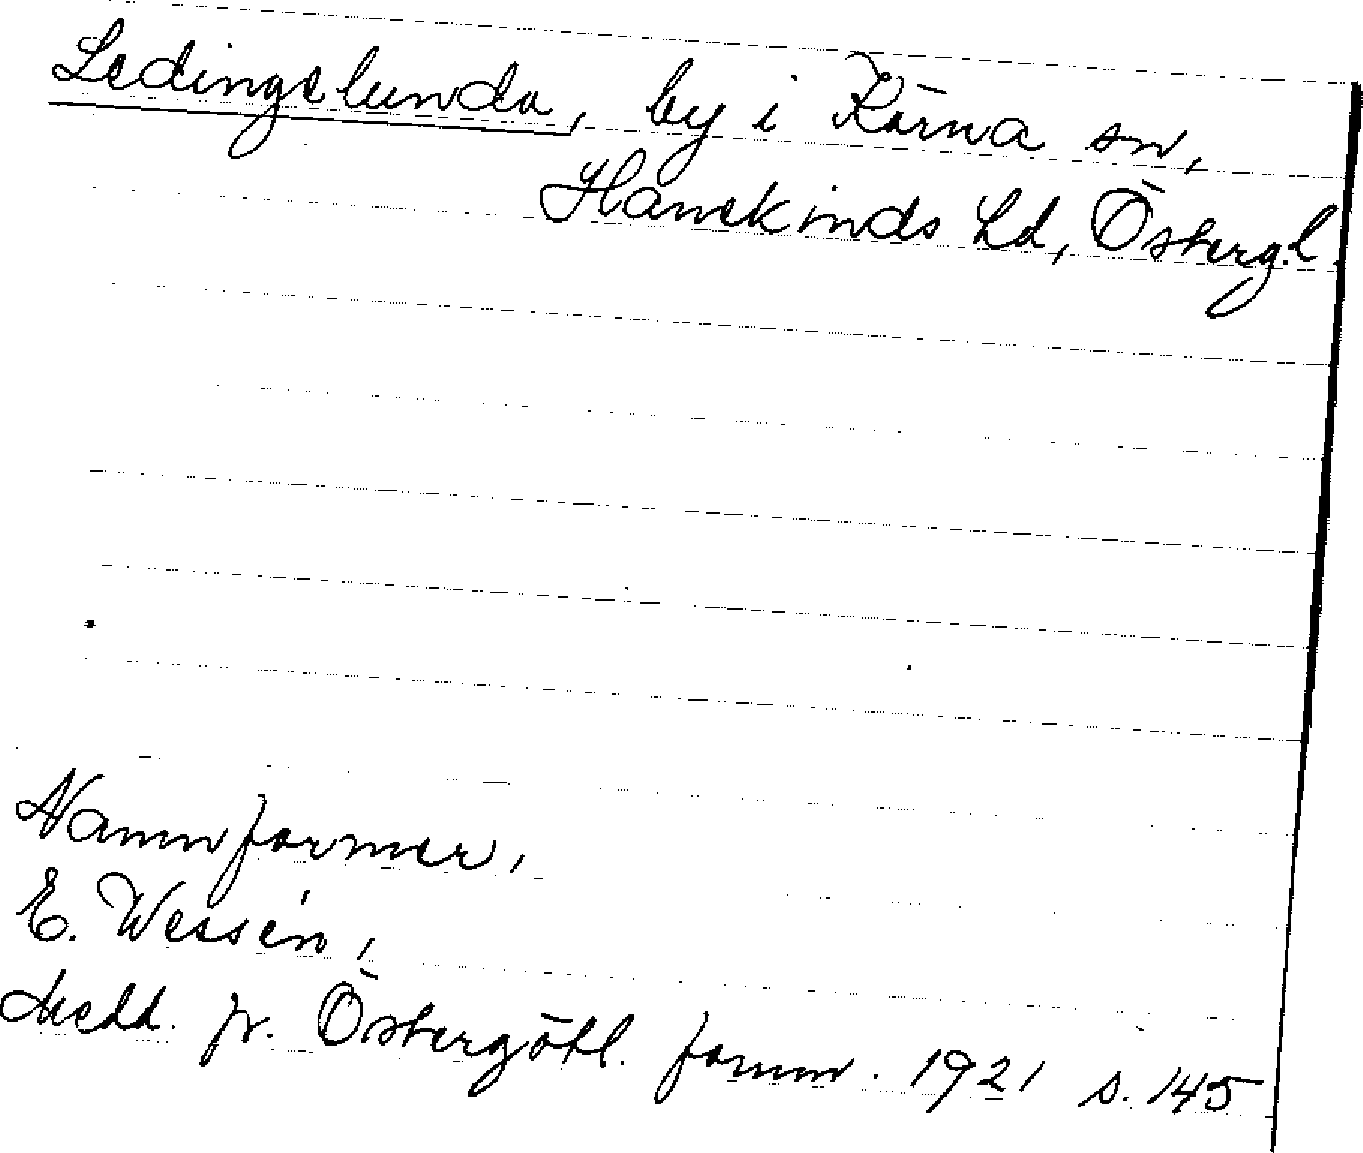 Ledingelunda, by i Kärna sn,
Hanekinds hd, Östergl.
Namnformer,
E. Wessén,
Medd. fr. Östergötl. fornm. 1921 s. 145